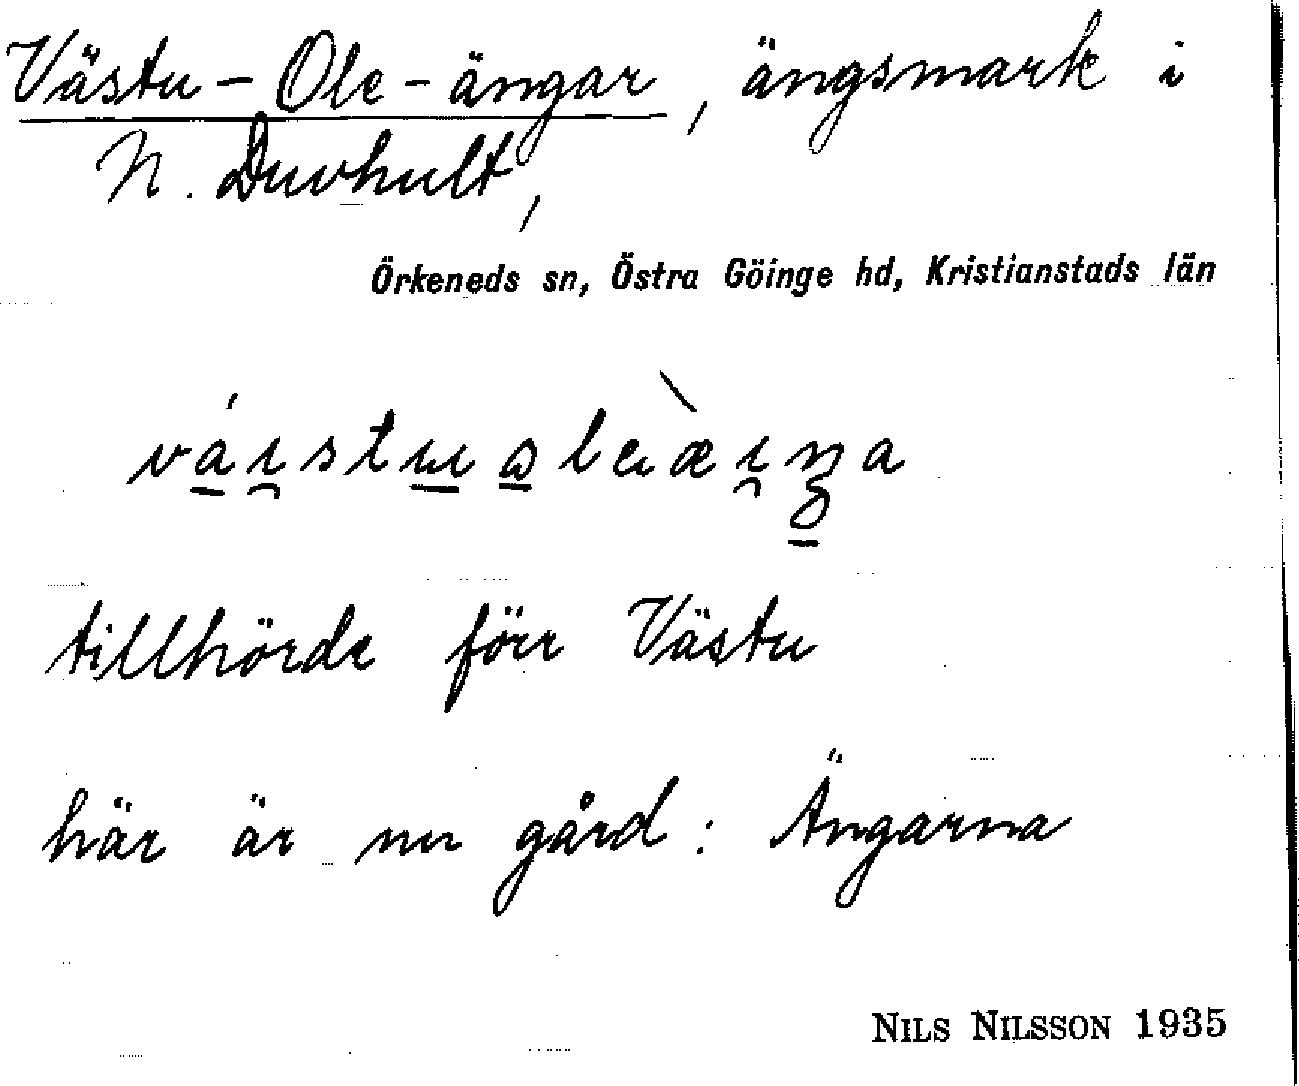 Västu-Ole-ängar, ängsmark i
N. Duvhult,
Örkeneds sn, Östra Göinge hd, Kristianstads län
tillhörde förr Västu
här är nu gård: Ängarna
NILS NILSSON 1935